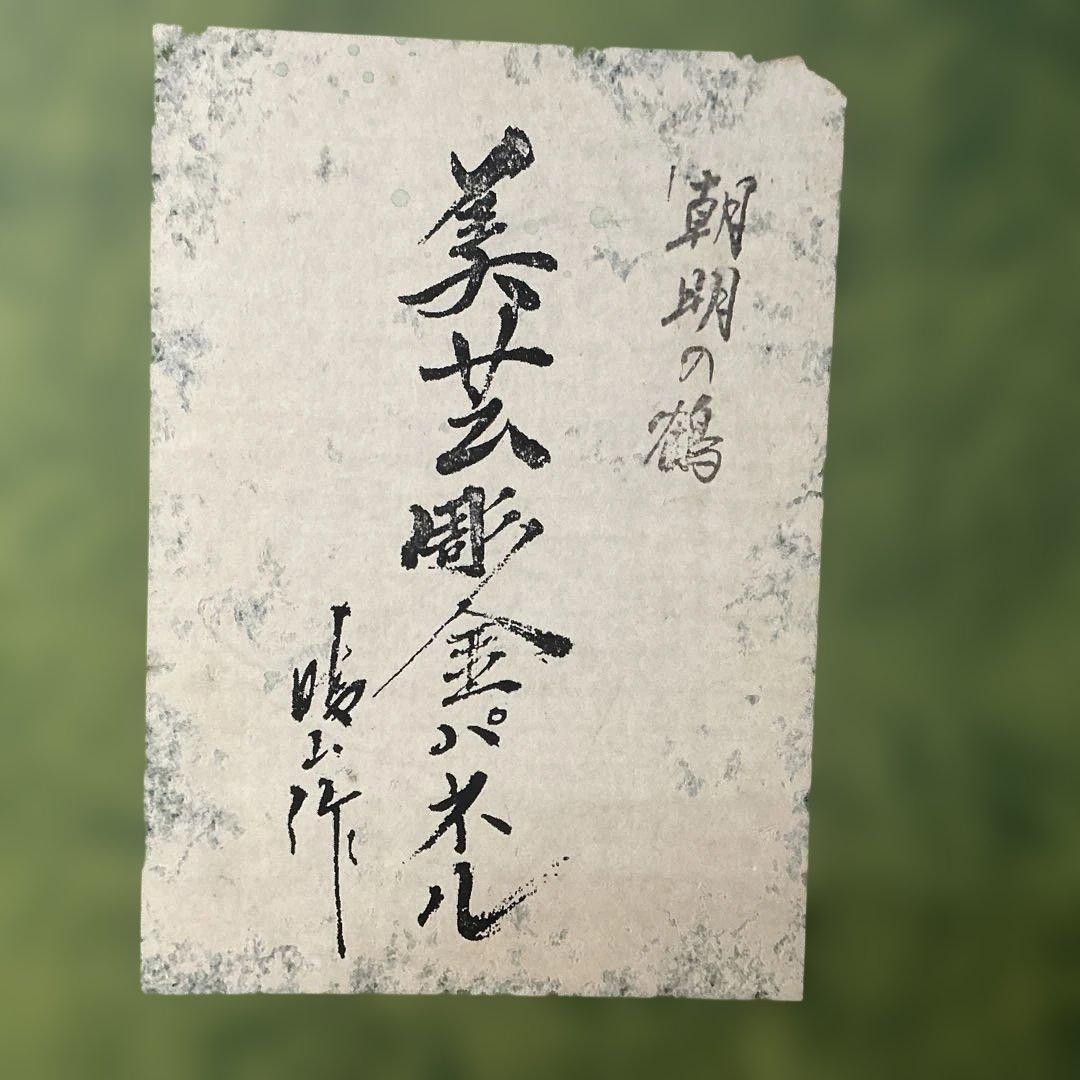 「朝明の鶴
美芸彫金パネル
山作